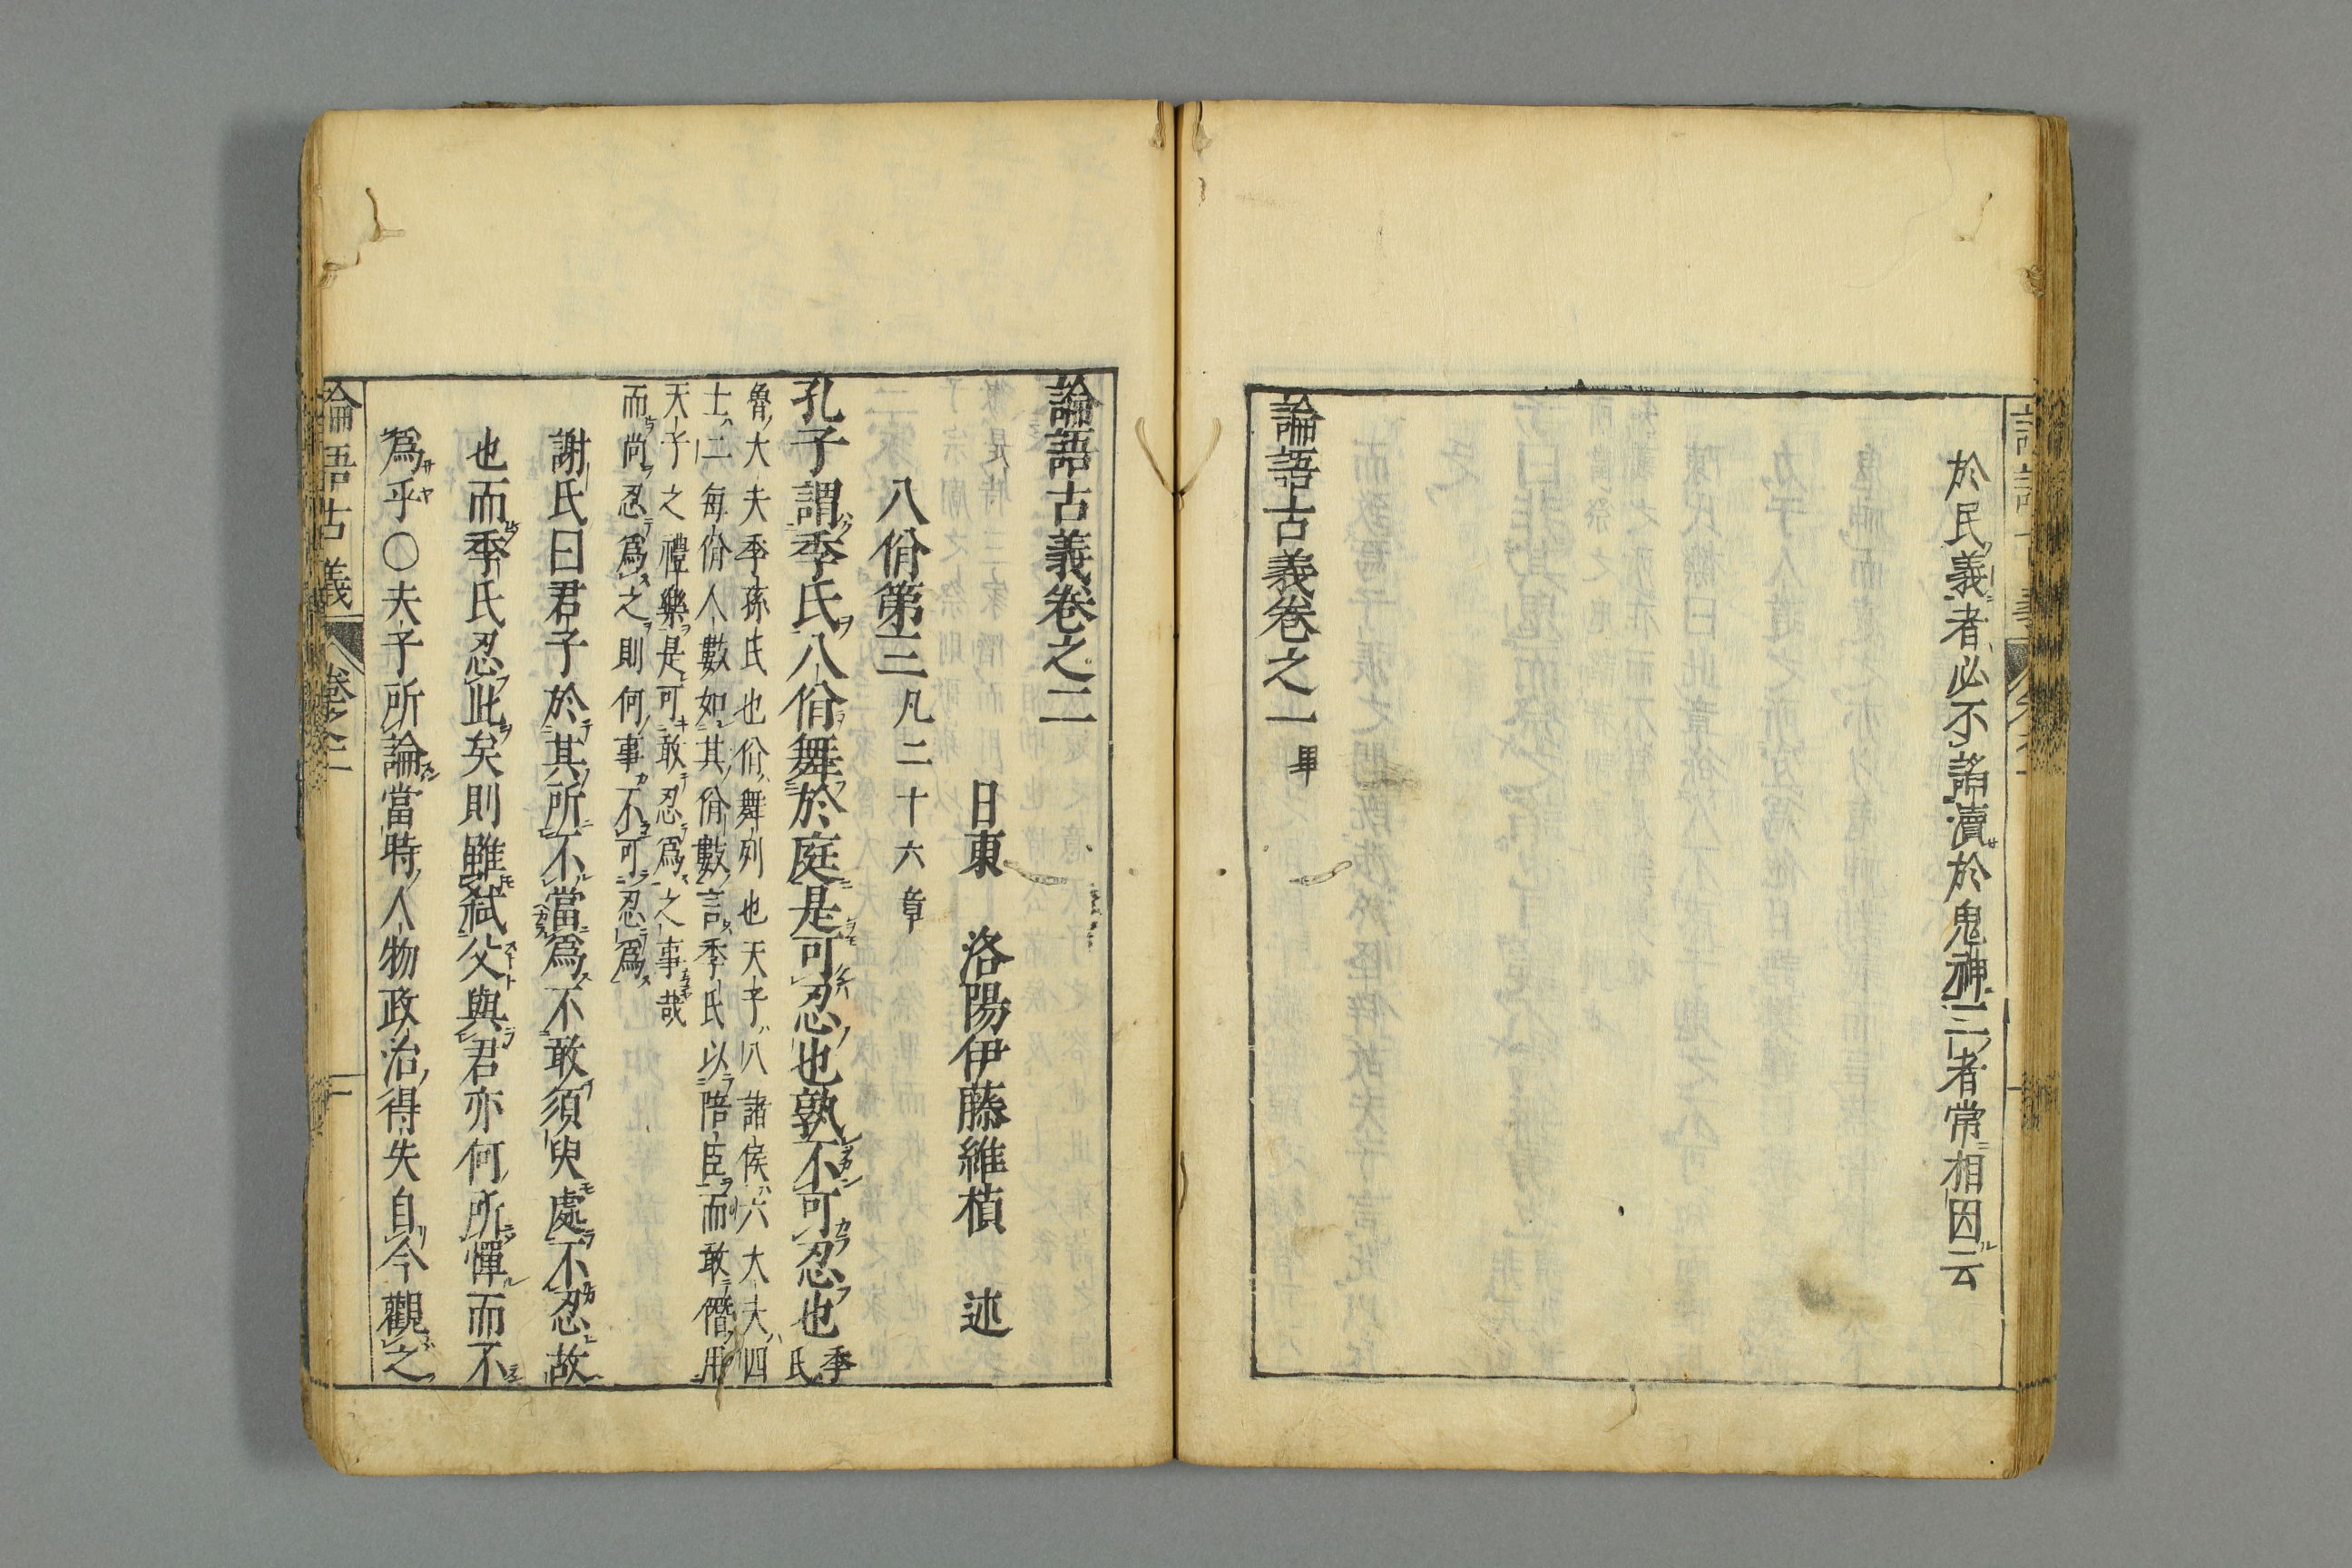 於民義者必不諂瀆於鬼神二者常相因云
論語古義卷之一畢
論語古義卷之二
日東　洛陽伊藤維楨　述
八佾第三凡二十六章
孔子謂季氏八佾舞於庭是可忍也孰不可忍也季氏
魯大夫季孫氏也佾舞列也天子八諸侯六大夫四
士二每佾人數如其佾數言季氏以陪臣而敢僭用
天子之禮樂是可敢忍爲之事哉
而尚忍爲之則何事不可忍爲
謝氏曰君子於其所不當爲不敢須臾處不忍故
也而季氏忍此矣則雖弑父與君亦何所憚而不
爲乎〇夫子所論當時人物政治得失自今觀之
論語古義　卷之二　一